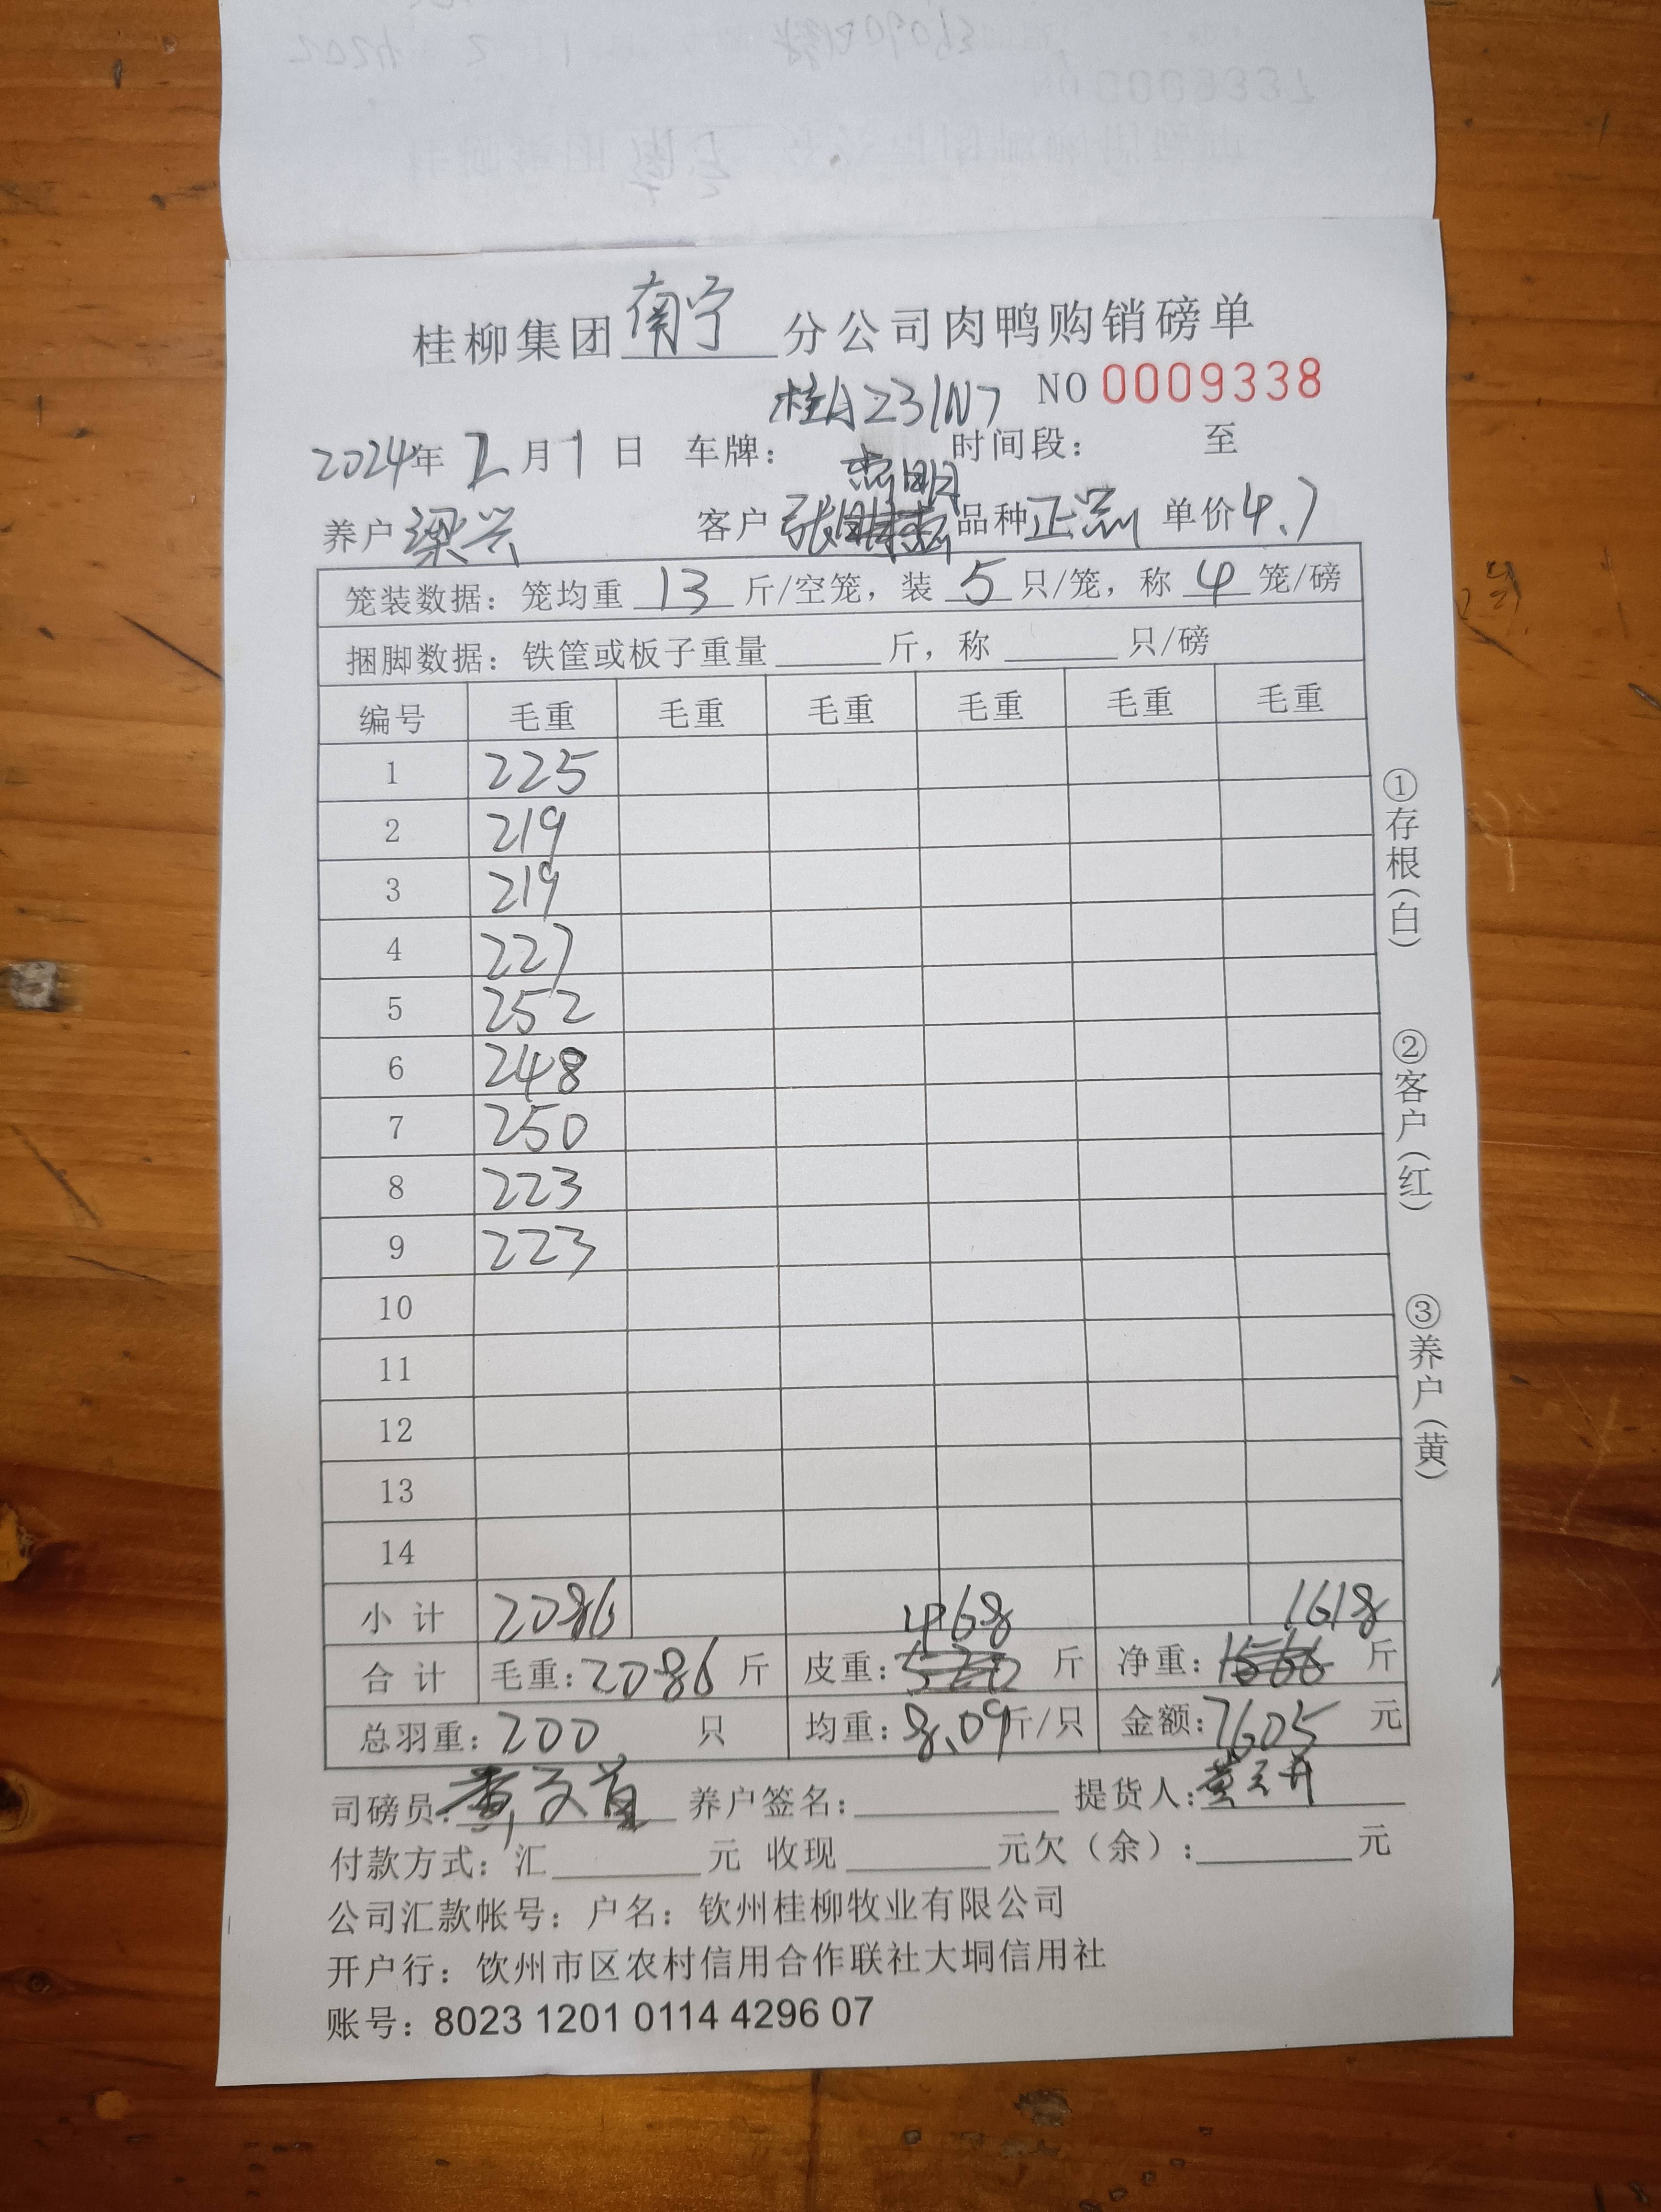 桂柳集团南宁分公司肉鸭购销磅单
桂A231N7 NO 0009338
2024年2月1日 车牌： 时间段： 至
杰明
养户梁兴 客户张 品种正品 单价4.7
笼装数据：笼均重13斤/空笼，装5只/笼，称4笼/磅
捆脚数据：铁筐或板子重量______斤，称______只/磅
编号 毛重 毛重 毛重 毛重 毛重 毛重
1 225
2 219
3 219
4 227
5 252
6 248
7 250
8 223
9 223
10
11
12
13
14
小计 2086 468 1618
合计 毛重：2086斤 皮重：520斤 净重：1566斤
总羽重：200只 均重：8.09斤/只 金额：7605元
司磅员：黄 养户签名： 提货人：黄
付款方式：汇______元 收现______元欠（余）：______元
公司汇款帐号：户名：钦州桂柳牧业有限公司
开户行：钦州市区农村信用合作联社大垌信用社
账号：8023 1201 0114 4296 07
①存根（白）
②客户（红）
③养户（黄）